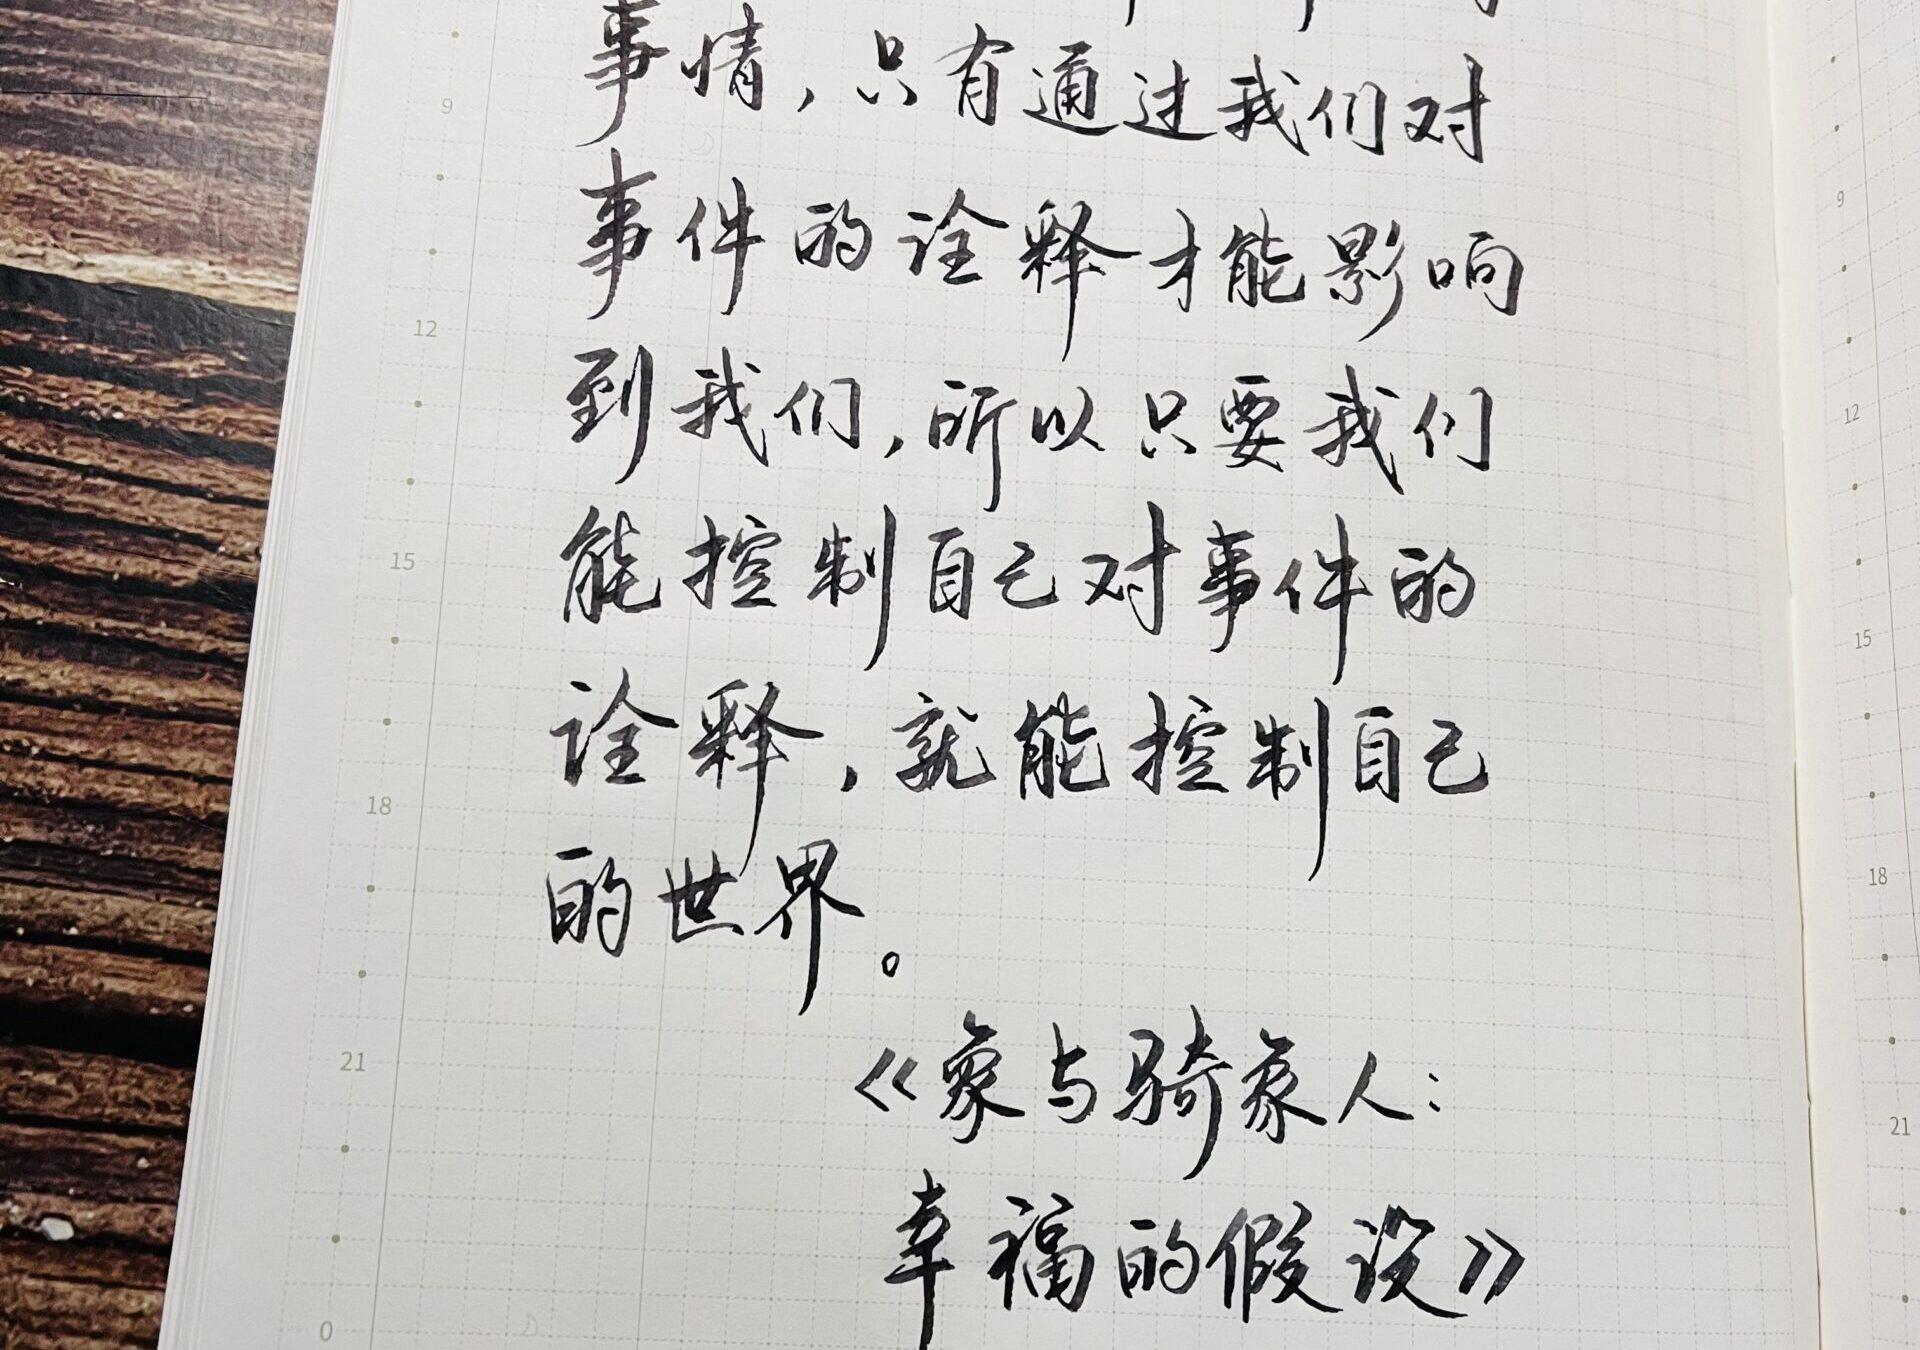 事情，只有通过我们对
事件的诠释才能影响
到我们，所以只要我们
能控制自己对事件的
诠释，就能控制自己
的世界。
《象与骑象人：
幸福的假设》
9
12
15
18
21
0
9
12
15
18
21